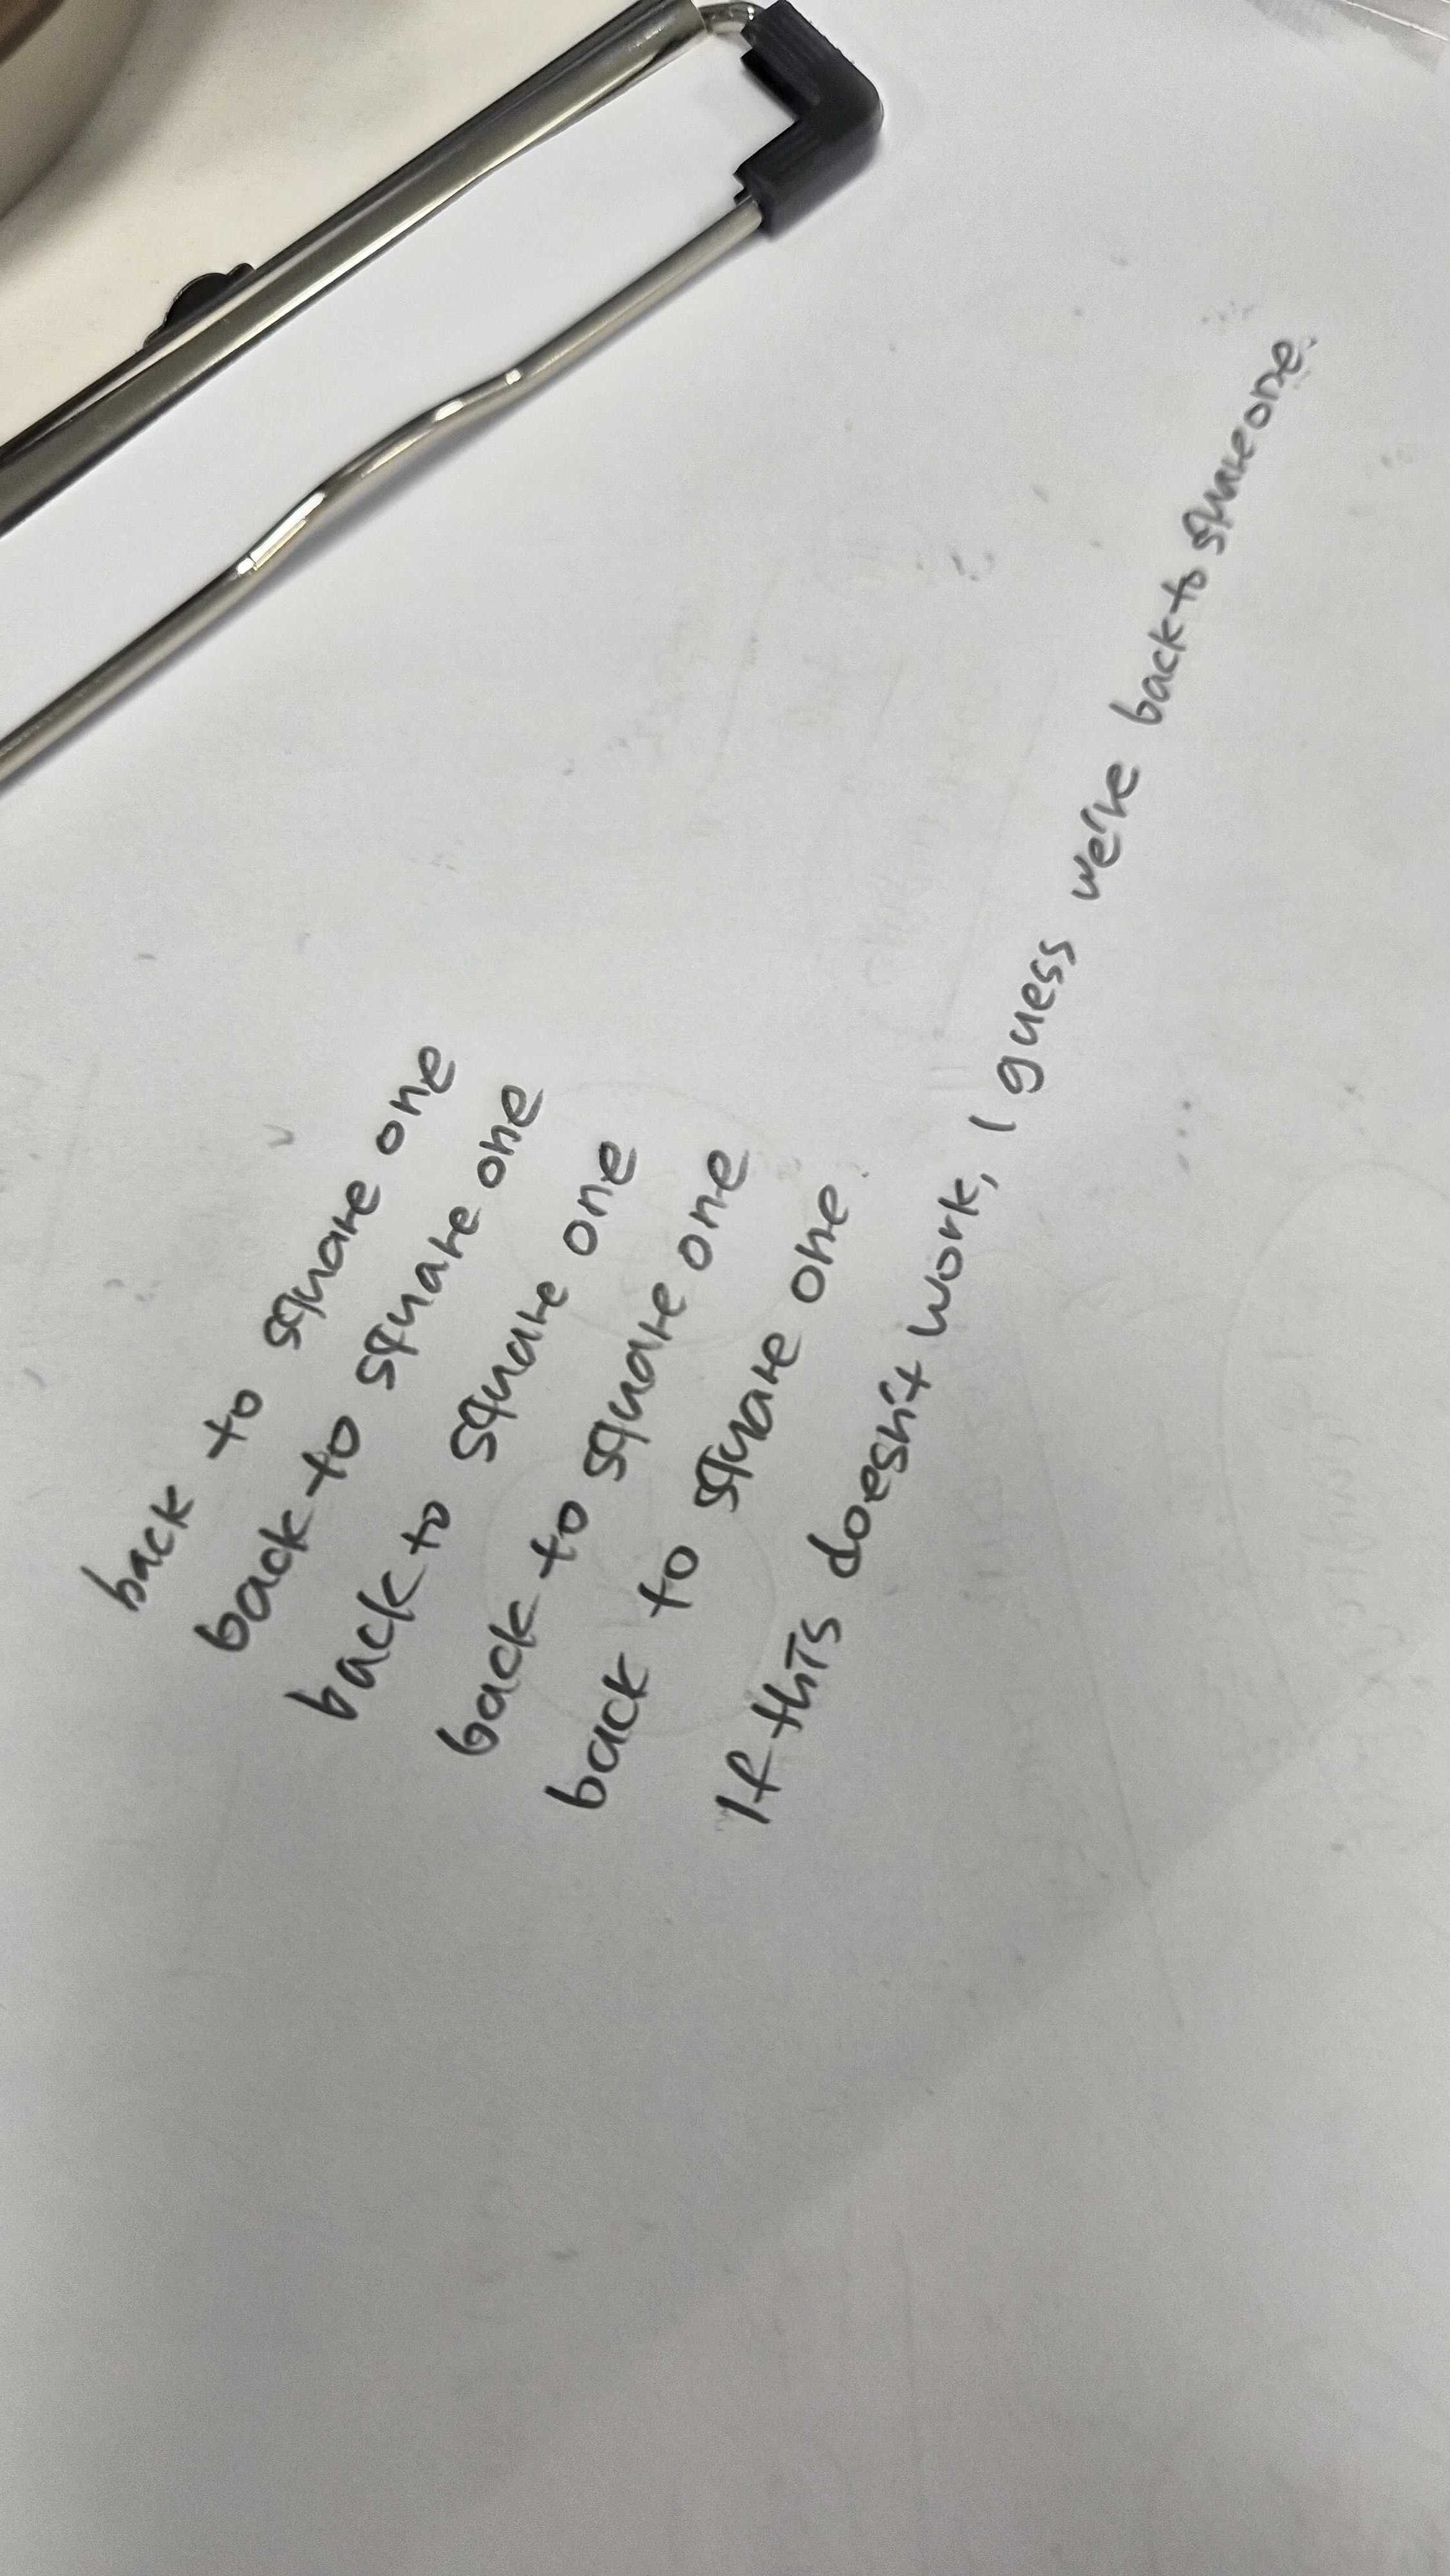 back to square one
back to square one
back to square one
back to square one
back to square one.
If this doesn't work, I guess we're back to square one.